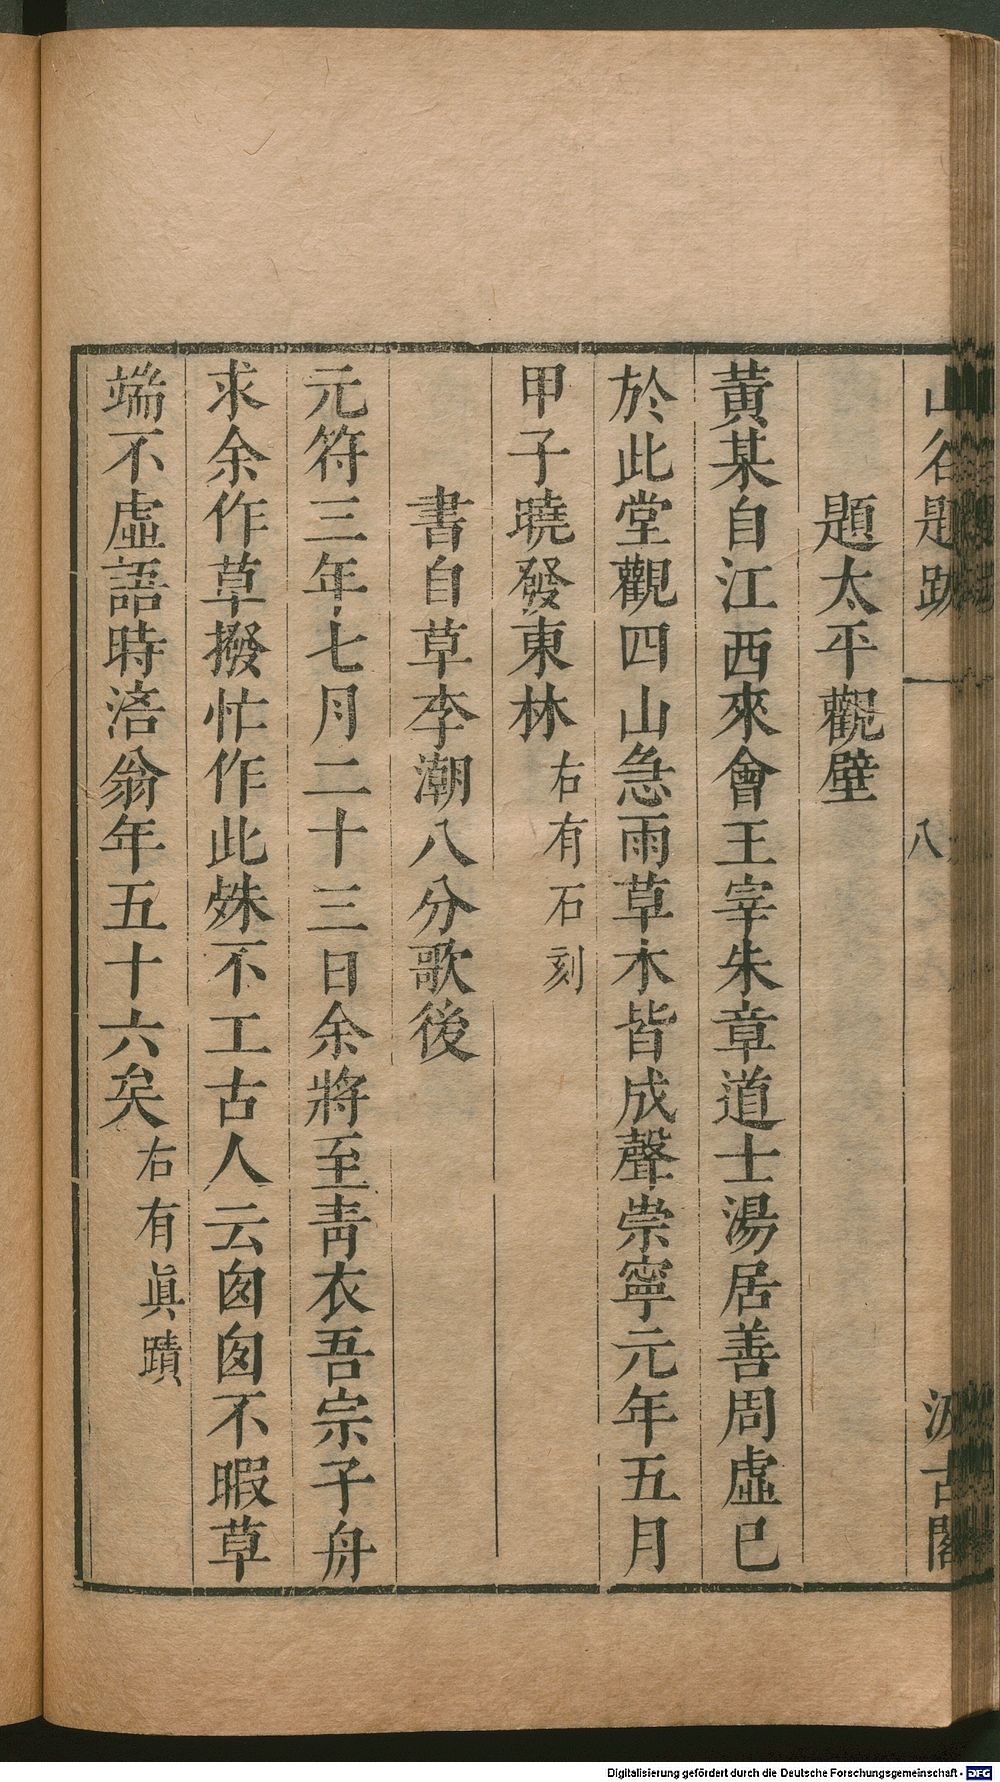 山谷題跋 八 汲古閣
題太平觀壁
黃某自江西來會王宰朱章道士湯居善周虛巳
於此堂觀四山急雨草木皆成聲崇寧元年五月
甲子曉發東林 右有石刻
書自草李潮八分歌後
元符三年七月二十三日余將至靑衣吾宗子舟
求余作草撥忙作此殊不工古人云匆匆不暇草
端不虛語時涪翁年五十六矣 右有眞蹟
Digitalisierung gefördert durch die Deutsche Forschungsgemeinschaft - DFG